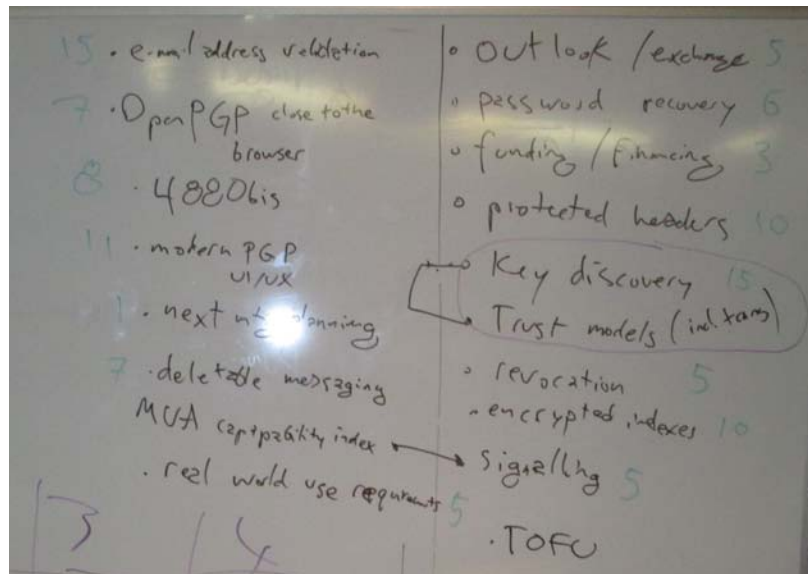 15 · e-mail address validation
7 · OpenPGP close to the
browser
8 · 4880bis
11 · modern PGP
UI/UX
1 · next mtg planning
7 · deletable messaging
MUA captpability index
· real world use requirments 5
13 14
o outlook / exchange 5
o password recovery 6
o funding / financing 3
o protected headers 10
o Key discovery 15
· Trust models (incl
o revocation 5
· encrypted indexes 10
signalling 5
· TOFU